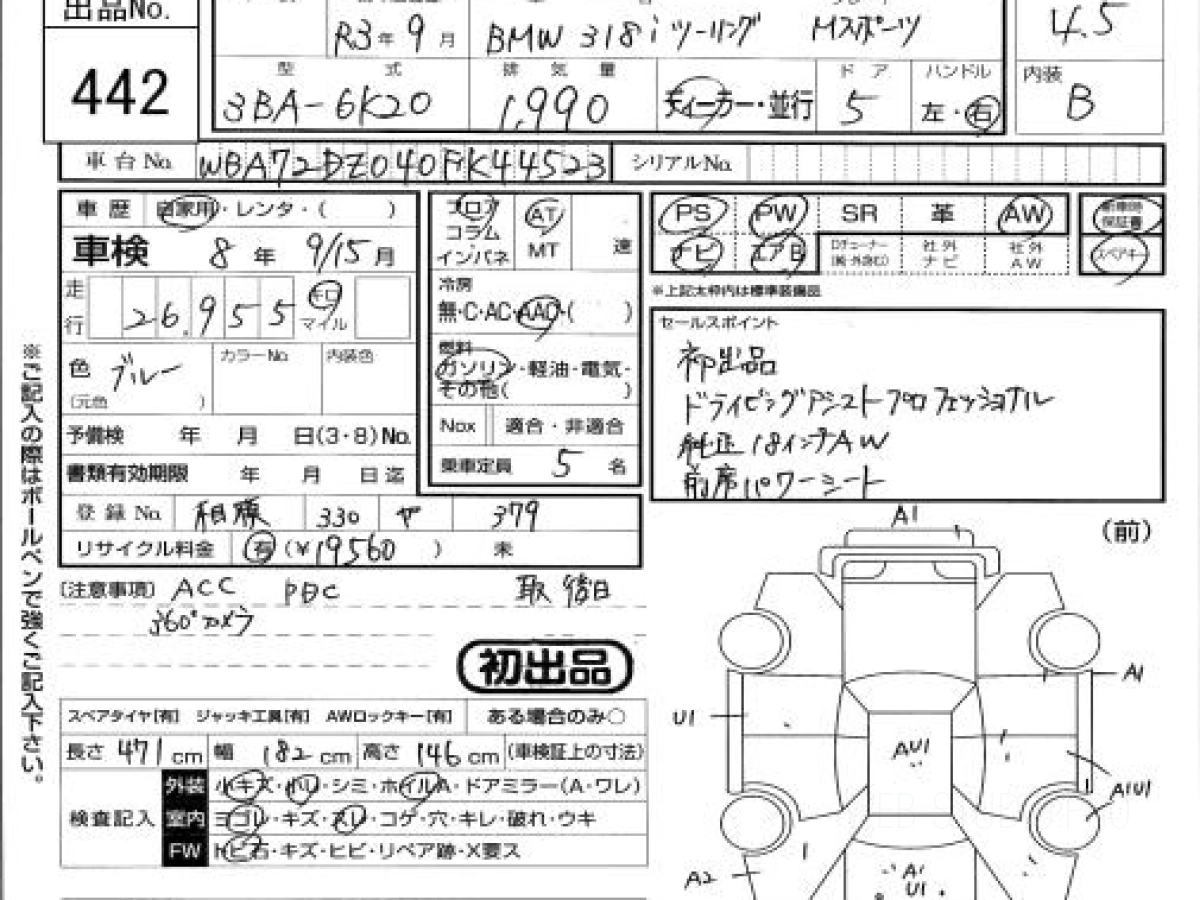 出品No.
442
R3年 9月 BMW 318i ツーリング Mスポーツ 4.5
型 式 排 気 量 ドア ハンドル 内装
3BA-6K20 1,990 ディーラー・並行 5 左・右 B
車台No. WBA72DZ040FK44523 シリアルNo.
車歴 自家用・レンタ・( )
車検 8年 9/15月
走行 26,955 キロ マイル
色 ブルー カラーNo. 内装色
(元色 )
予備検 年 月 日(3・8)No.
書類有効期限 年 月 日迄
登録No. 相模 330 ヤ 379
リサイクル料金 有(¥19560 ) 未
フロア コラム インパネ AT MT 速
冷房
無・C・AC・AAC・( )
燃料
ガソリン・軽油・電気・
その他( )
Nox 適合・非適合
乗車定員 5 名
PS PW SR 革 AW 新車時保証書
ナビ エアB 社外ナビ 社外AW スペアキー
※上記太枠内は標準装備品
セールスポイント
初出品
ドライビングアシストプロフェッショナル
純正18インチAW
前席パワーシート
※ご記入の際はボールペンで強くご記入下さい。
〔注意事項〕 ACC PDC 取 後日
360°カメラ
初出品
スペアタイヤ[有] ジャッキ工具[有] AWロックキー[有] ある場合のみ○
長さ 471cm 幅 182cm 高さ 146cm (車検証上の寸法)
検査記入
外装 小キズ・小U・シミ・ホイルA・ドアミラー(A・ワレ)
室内 ヨゴレ・キズ・スレ・コゲ・穴・キレ・破れ・ウキ
FW トビ石・キズ・ヒビ・リペア跡・X要ス
(前)
A1
A1
U1
AU1
A1U1
A2
A1
U1